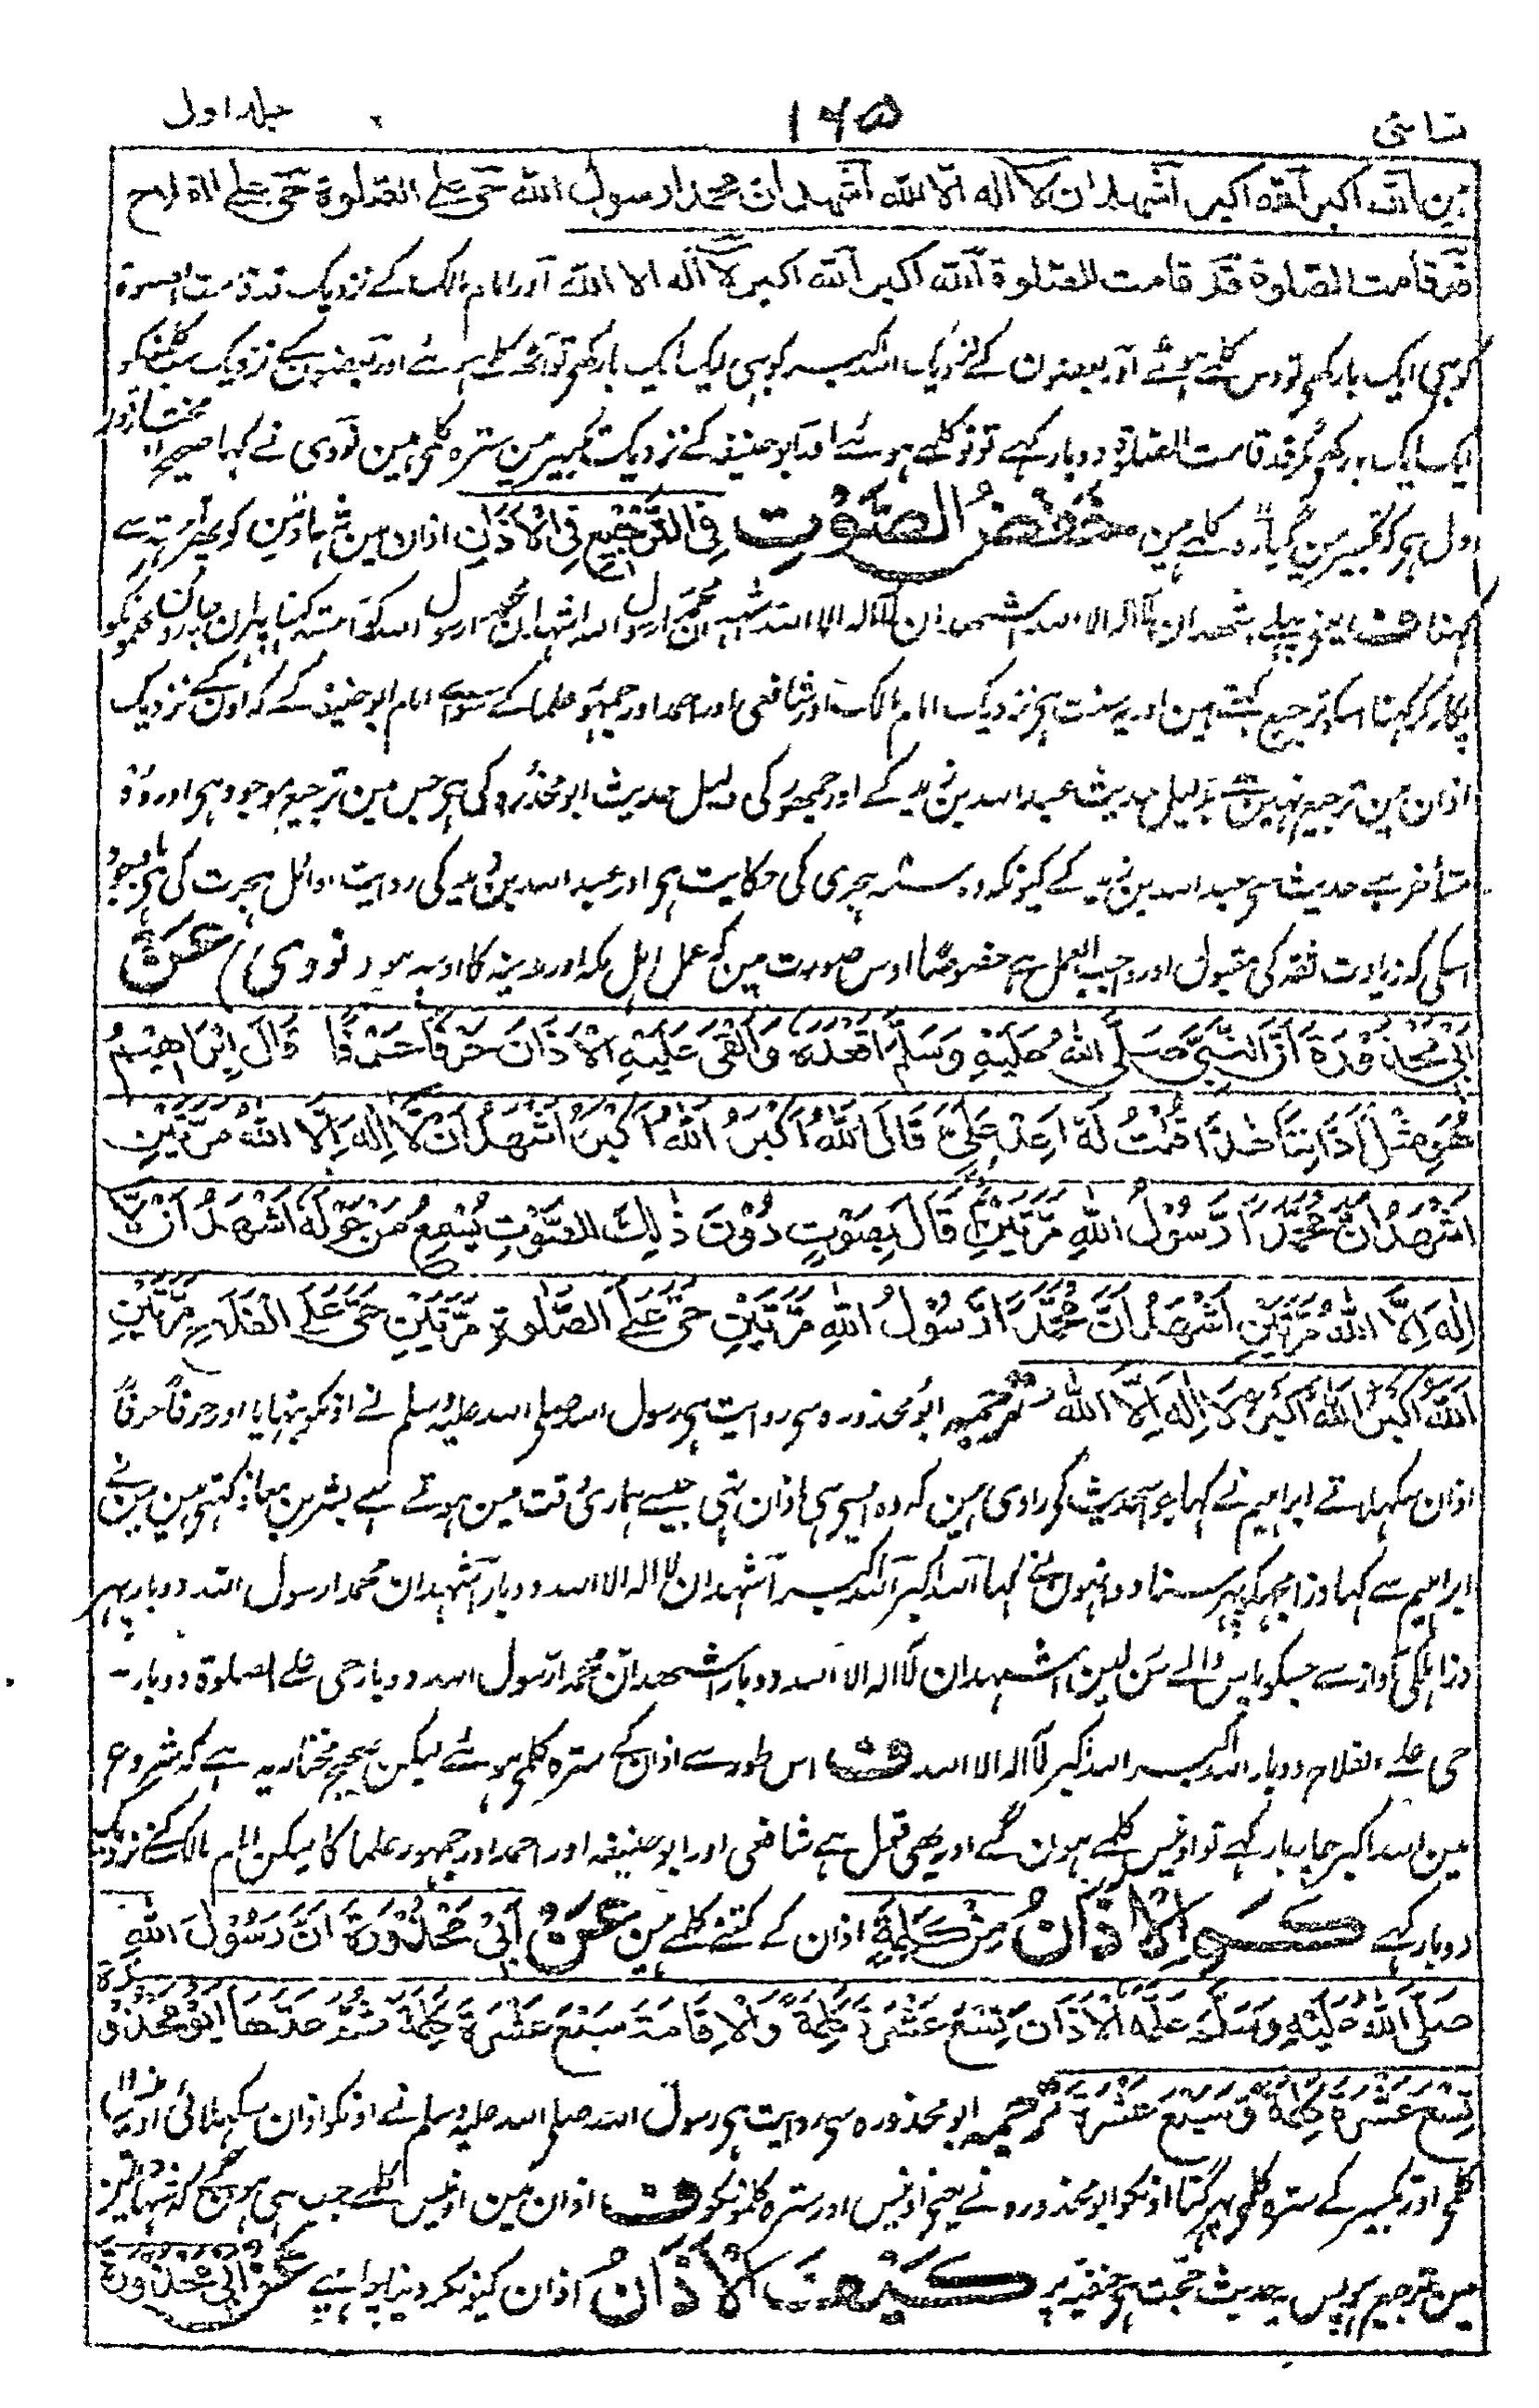 نسائی ۱۶۵ جلد اول
ہین الله اکبر الله اکبر اشهد ان لا اله الا الله اشهد ان محمدا رسول الله حی علی الصلوة حی علی الفلاح
قد قامت الصلوة قد قامت الصلوة الله اکبر الله اکبر لا اله الا الله اور امام مالک کے نزدیک قد قامت الصلوة
کو بہی ایک بار کہی تو دس کلمے ہوئے اور بعضون کے نزدیک الله اکبر کو بہی ایک ایک بار کہی تو آٹھ کلمے ہوئے اور بعضون کے نزدیک سب کلمونکو
ایک ایک بار کہی مگر قد قامت الصلوة دو بار کہے تو نو کلمے ہوئے اور ابو حنیفہ کے نزدیک تکبیر مین سترہ کلمے ہین نووی نے کہا صحیح اور مختار
اول ہی کہ تکبیر مین گیارہ کلمے ہین خَفْضُ الصَّوْتِ فِي التَّرْجِيعِ فِي الْأَذَانِ اذان مین شہادتین کو پھر آہستہ سے
کہنا ف یعنی پہلے اشهد ان لا اله الا الله اشهد ان لا اله الا الله اشهد ان محمدا رسول الله اشهد ان محمدا رسول الله کو آہستہ کہنا پہر ان چارون کلمونکو
پکار کر کہنا اسکو ترجیع کہتے ہین اور یہ سنت ہی نزدیک امام مالک اور شافعی اور احمد اور جمہور علما کے سوائے امام ابو حنیفہ کے کہ اون کے نزدیک
اذان مین ترجیع نہین ہے بدلیل حدیث عبد الله بن زید کے اور جمہور کی دلیل حدیث ابو محذورہ کی ہی جس مین ترجیع موجود ہی اور وہ
متأخر ہے حدیث سی عبد الله بن زید کے کیونکہ وہ سنہ ہجری کی حکایت ہی اور عبد الله بن زید کی روایت اوائل ہجرت کی ہی باوجود
اسکی کہ زیادت ثقہ کی مقبول اور واجب العمل ہے خصوصًا اوس صورت مین کہ عمل اہل مکہ اور مدینہ کا اوسپر ہو (نووی) عَنْ
أَبِي مَحْذُورَةَ أَنَّ النَّبِيَّ صَلَّى اللهُ عَلَيْهِ وَسَلَّمَ أَقْعَدَهُ وَأَلْقَى عَلَيْهِ الْأَذَانَ حَرْفًا حَرْفًا قَالَ إِبْرَاهِيْمُ
هُوَ مِثْلُ أَذَانِنَا هٰذَا قُلْتُ لَهُ أَعِدْ عَلَيَّ قَالَ اللهُ أَكْبَرُ اللهُ أَكْبَرُ أَشْهَدُ أَنْ لَّا إِلٰهَ إِلَّا اللهُ مَرَّتَيْنِ
أَشْهَدُ أَنَّ مُحَمَّدًا رَّسُوْلُ اللهِ مَرَّتَيْنِ ثُمَّ قَالَ بِصَوْتٍ دُوْنَ ذٰلِكَ الصَّوْتِ يُسْمِعُ مَنْ حَوْلَهُ أَشْهَدُ أَنْ لَّا
إِلٰهَ إِلَّا اللهُ مَرَّتَيْنِ أَشْهَدُ أَنَّ مُحَمَّدًا رَّسُوْلُ اللهِ مَرَّتَيْنِ حَيَّ عَلَى الصَّلٰوةِ مَرَّتَيْنِ حَيَّ عَلَى الْفَلَاحِ مَرَّتَيْنِ
اللهُ أَكْبَرُ اللهُ أَكْبَرُ لَا إِلٰهَ إِلَّا اللهُ ترجمہ ابو محذورہ سی روایت ہی رسول الله صلی الله علیہ وسلم نے انکو بٹہایا اور حرفًا حرفًا
اذان سکہلائے ابراہیم نے کہا جو اس حدیث کو راوی ہین کہ وہ ایسی ہی اذان تہی جیسے ہماری وقت مین ہوتے ہے بشر بن معاذ کہتی ہین مین نے
ابراہیم سے کہا ذرا مجہکو پہر سنا دو اونہون نے کہا الله اکبر الله اکبر اشهد ان لا اله الا الله دو بار اشهد ان محمدا رسول الله دو بار پہر
ذرا ہلکی آواز سے جسکو پاس والے سن لین اشهد ان لا اله الا الله دو بار اشهد ان محمدا رسول الله دو بار حی علے الصلوة دو بار -
حی علے الفلاح دو بار الله اکبر الله اکبر لا اله الا الله ف اس طور سے اذان کے سترہ کلمی ہوئے لیکن صحیح مختار یہ ہے کہ شروع
مین الله اکبر چار بار کہے تو اونیس کلمے ہون گے اور یہی قول ہے شافعی اور ابو حنیفہ اور احمد اور جمہور علما کا لیکن امام مالک کے نزدیک
دو بار کہے كَمِ الْأَذَانُ مِنْ كَلِمَةٍ اذان کے کتنے کلمے ہین عَنْ أَبِيْ مَحْذُوْرَةَ أَنَّ رَسُوْلَ اللهِ
صَلَّى اللهُ عَلَيْهِ وَسَلَّمَ عَلَّمَهُ الْأَذَانَ تِسْعَ عَشْرَةَ كَلِمَةً وَالْإِقَامَةَ سَبْعَ عَشْرَةَ كَلِمَةً ثُمَّ عَدَّهَا أَبُوْ مَحْذُوْرَةَ
تِسْعَ عَشْرَةَ كَلِمَةً وَسَبْعَ عَشْرَةَ ترجمہ ابو محذورہ سی روایت ہی رسول الله صلی الله علیہ وسلم نے اونکو اذان سکہلائی اونیس
کلمی اور تکبیر کے سترہ کلمی پہر گنا اونکو ابو محذورہ نے یعنی اونیس اور سترہ کلمونکو ف اذان مین اونیس کلمے جب ہی ہونگے کہ شہادتین
مین ترجیع ہو پس یہ حدیث حجت ہی حنفیہ پر كَيْفَ الْأَذَانُ اذان کیونکر دینا چاہیے عَنْ أَبِيْ مَحْذُوْرَةَ